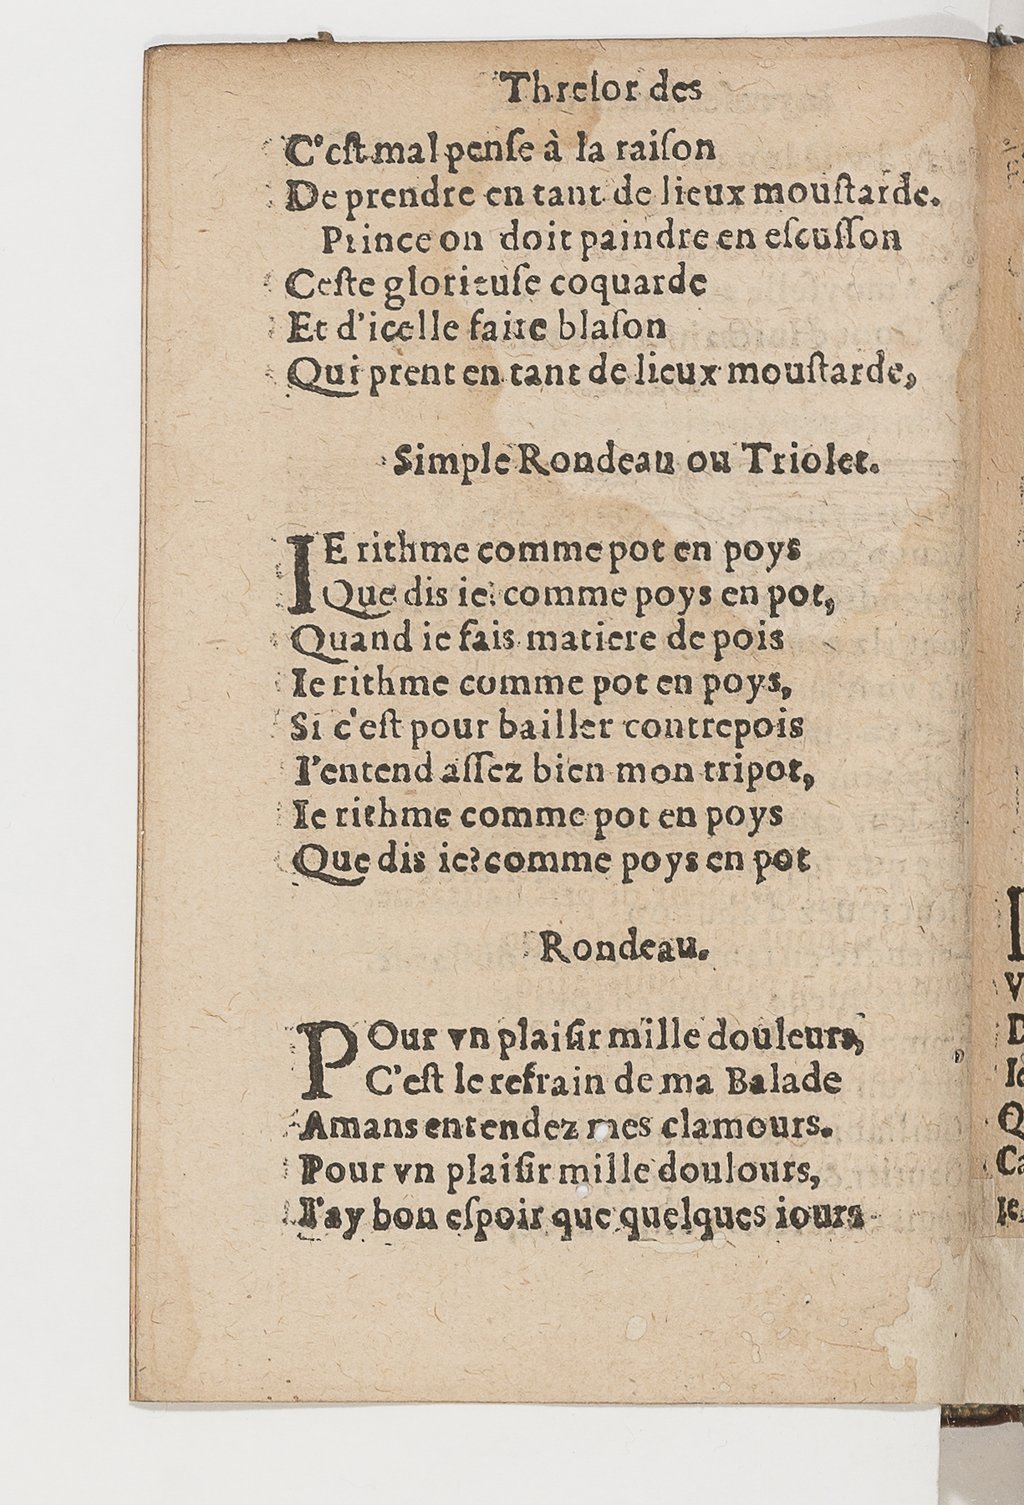 Threſor des
C'eſt mal penſe à la raiſon
De prendre en tant de lieux mouſtarde.
Prince on doit paindre en eſcuſſon
Ceſte glorieuſe coquarde
Et d'icelle faite blaſon
Qui prent en tant de lieux mouſtarde,
Simple Rondeau ou Triolet.
IE rithme comme pot en poys
Que dis ie: comme poys en pot,
Quand ie fais matiere de pois
Ie rithme comme pot en poys,
Si c'eſt pour bailler contrepois
I'entend aſſez bien mon tripot,
Ie rithme comme pot en poys
Que dis ie? comme poys en pot
Rondeau.
POur vn plaiſir mille douleurs,
C'eſt le refrain de ma Balade
Amans entendez mes clamours.
Pour vn plaiſir mille doulours,
I'ay bon eſpoir que quelques iours